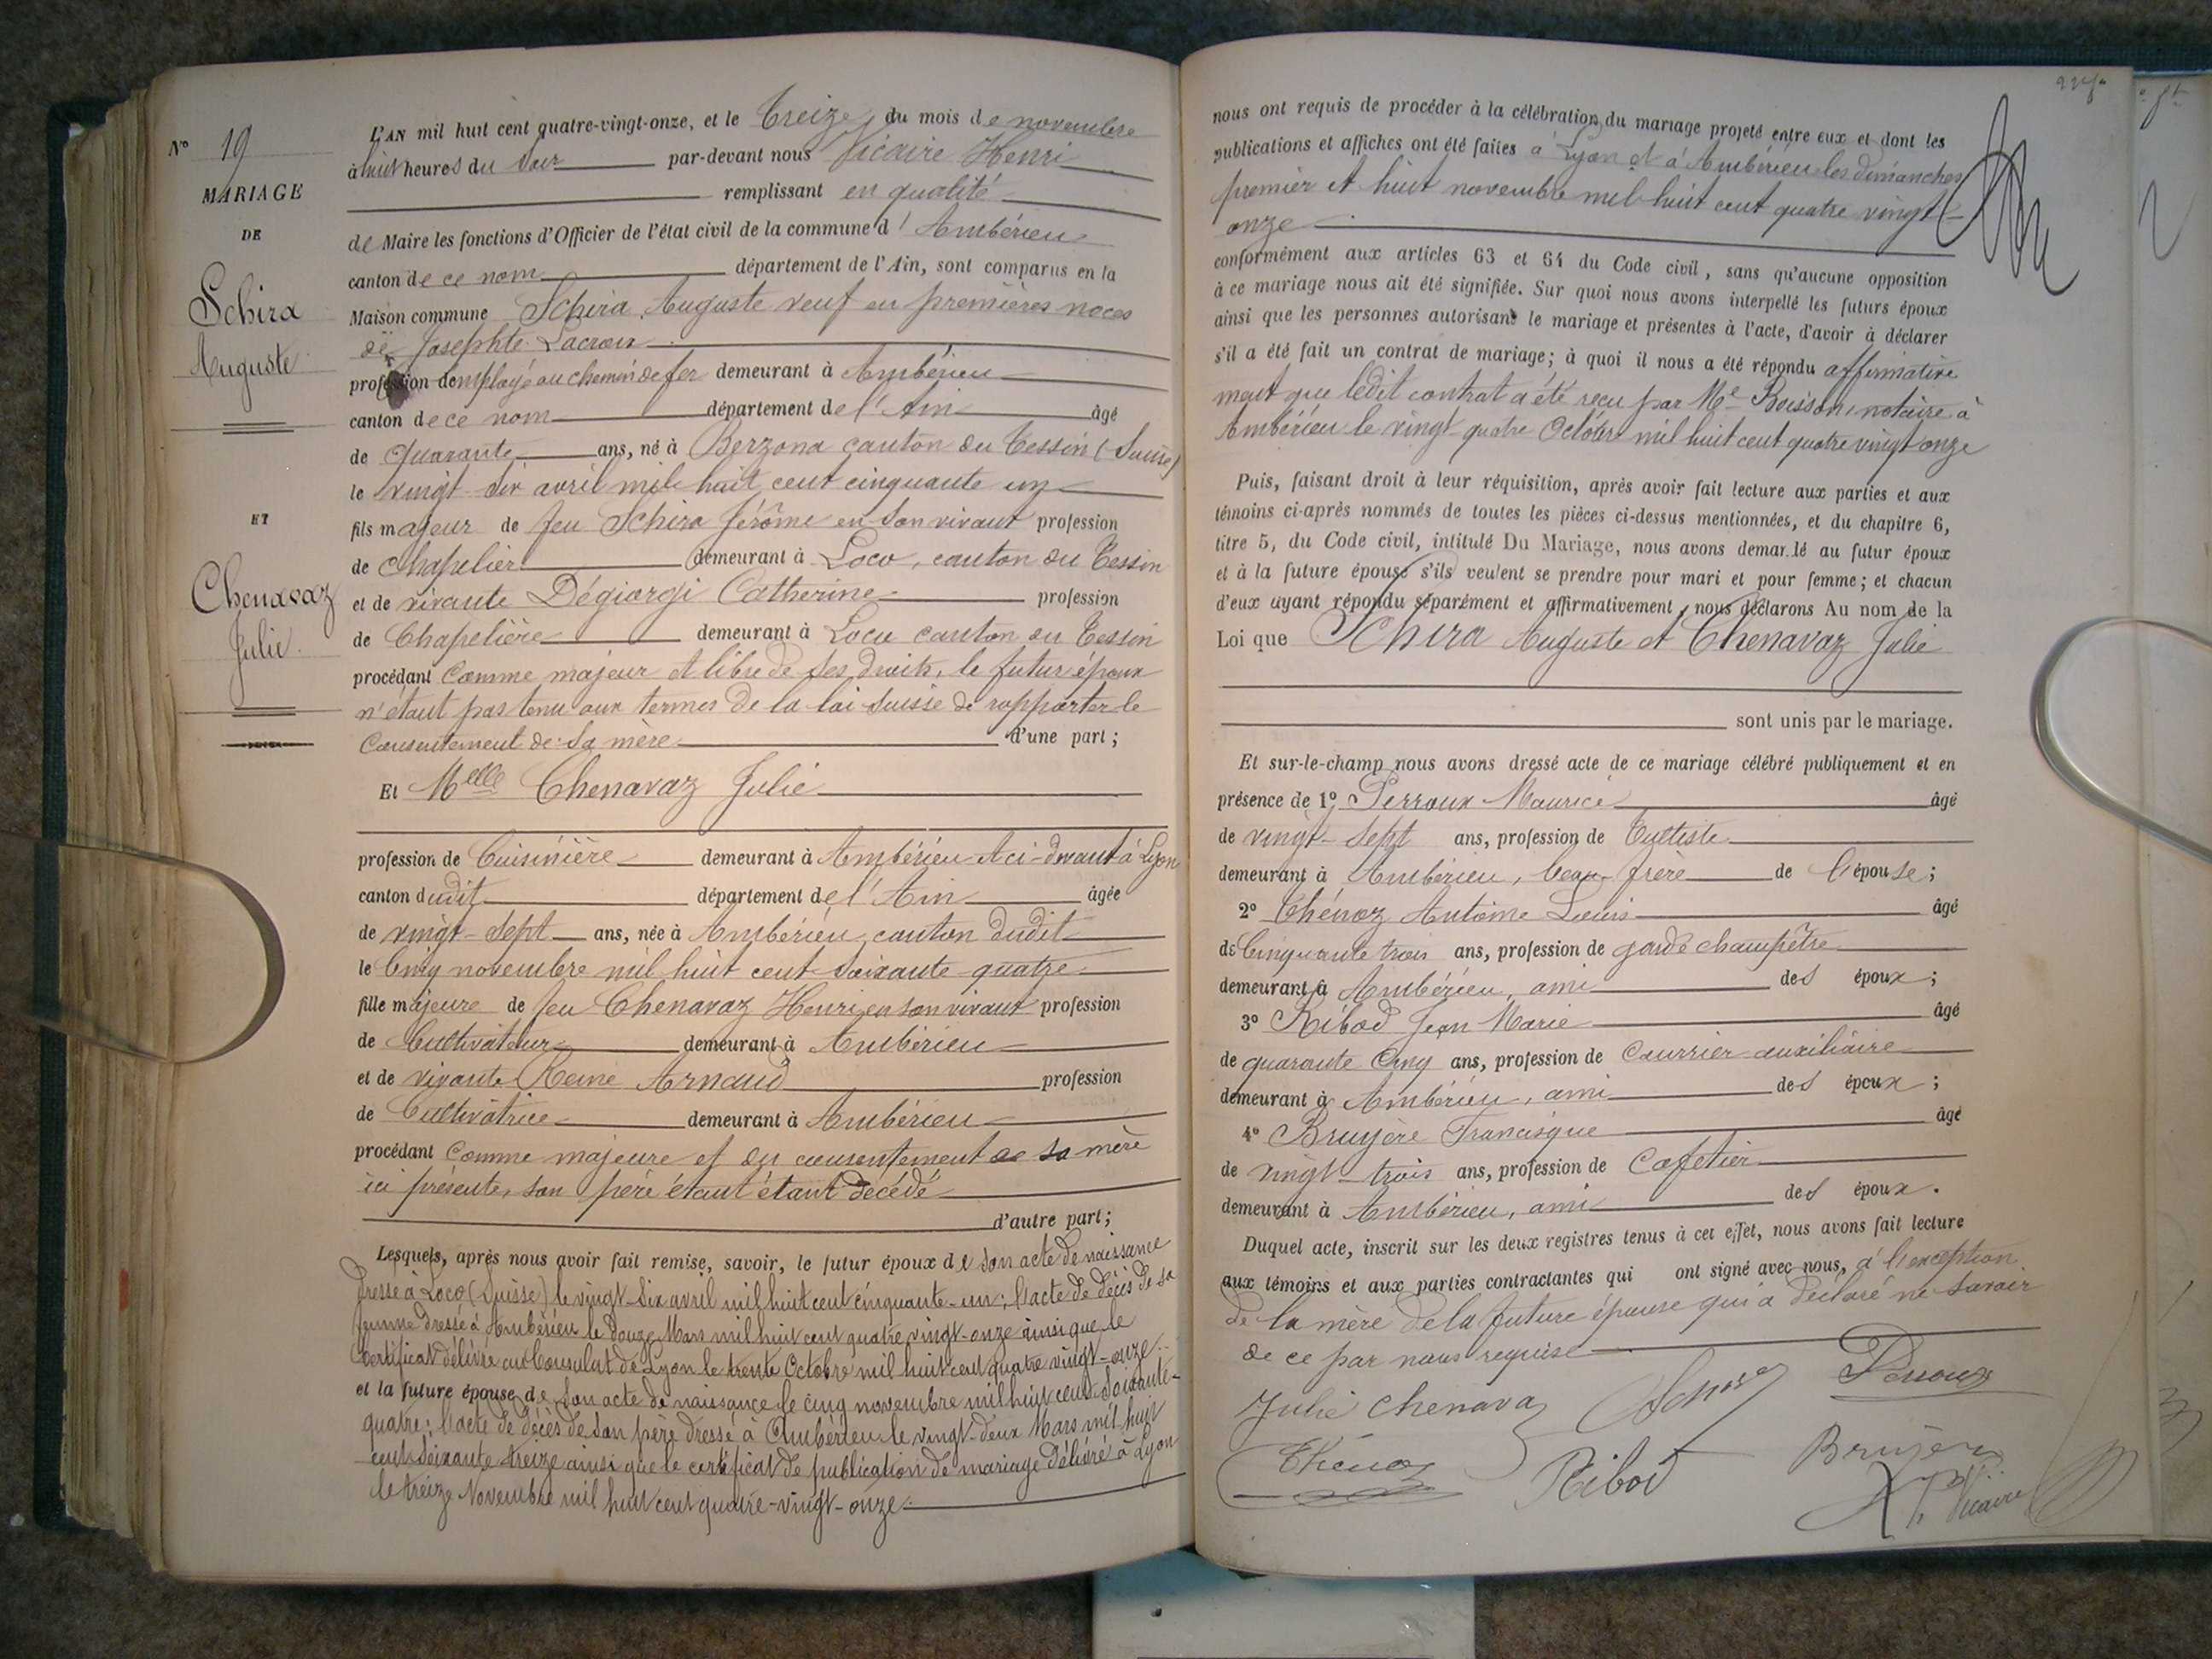 N° 19
MARIAGE
DE
Schira
Auguste
ET
Chenavaz
Julie
L'AN mil huit cent quatre-vingt-onze, et le Treize du mois de novembre
à huit heures du soir par-devant nous Vicaire Henri
remplissant en qualité
de Maire les fonctions d'Officier de l'état civil de la commune d'Ambérieu
canton de ce nom département de l'Ain, sont comparus en la
Maison commune Schira Auguste veuf en premières noces
de Josephte Lacroix
profession demployé au chemin de fer demeurant à Ambérieu
canton de ce nom département de l'Ain âgé
de Quarante ans, né à Berzona canton du Tessin (Suisse)
le vingt-six avril mil huit cent cinquante un
fils majeur de feu Schira Jérôme en son vivant profession
de Chapelier demeurant à Loco, canton du Tessin
et de vivante Dégiorgi Catherine profession
de Chapelière demeurant à Loco canton du Tessin
procédant Comme majeur et libre de ses droits, le futur époux
n'étant pas tenu aux termes de la loi suisse de rapporter le
Consentement de sa mère d'une part;
Et Melle Chenavaz Julie
profession de Cuisinière demeurant à Ambérieu & ci-devant à Lyon
canton dudit département de l'Ain âgée
de vingt-sept ans, née à Ambérieu, canton dudit
le Cinq novembre mil huit cent soixante quatre
fille majeure de feu Chenavaz Henri, en son vivant profession
de Cultivateur demeurant à Ambérieu
et de vivante Reine Arnaud profession
de Cultivatrice demeurant à Ambérieu
procédant Comme majeure et du consentement de sa mère
ici présente, son père étant étant décédé
d'autre part;
Lesquels, après nous avoir fait remise, savoir, le futur époux de son acte de naissance
dressé à Loco (Suisse) le vingt-six avril mil huit cent cinquante-un; l'acte de décès de sa
femme dressé à Ambérieu le douze Mars mil huit cent quatre vingt-onze ainsi que le
Certificat délivré au Consulat de Lyon le trente Octobre mil huit cent quatre vingt-onze
et la future épouse de son acte de naissance le cinq novembre mil huit cent soixante-
quatre; l'acte de décès de son père dressé à Ambérieu le vingt-deux Mars mil huit
cent soixante treize ainsi que le certificat de publication de mariage délivré à Lyon
le treize Novembre mil huit cent quatre-vingt-onze.
nous ont requis de procéder à la célébration du mariage projeté entre eux et dont les
publications et affiches ont été faites à Lyon et à Ambérieu les dimanches
premier et huit novembre mil huit cent quatre vingt-
onze
conformément aux articles 63 et 64 du Code civil, sans qu'aucune opposition
à ce mariage nous ait été signifiée. Sur quoi nous avons interpellé les futurs époux
ainsi que les personnes autorisant le mariage et présentes à l'acte, d'avoir à déclarer
s'il a été fait un contrat de mariage; à quoi il nous a été répondu affirmative
ment que ledit contrat a été reçu par Me Boisson, notaire à
Ambérieu le vingt-quatre Octobre mil huit cent quatre vingt-onze
Puis, faisant droit à leur réquisition, après avoir fait lecture aux parties et aux
témoins ci-après nommés de toutes les pièces ci-dessus mentionnées, et du chapitre 6,
titre 5, du Code civil, intitulé Du Mariage, nous avons demandé au futur époux
et à la future épouse s'ils veulent se prendre pour mari et pour femme; et chacun
d'eux ayant répondu séparément et affirmativement, nous déclarons Au nom de la
Loi que Schira Auguste et Chenavaz Julie
sont unis par le mariage.
Et sur-le-champ nous avons dressé acte de ce mariage célébré publiquement et en
présence de 1° Perroux Maurice âgé
de vingt-sept ans, profession de Tulliste
demeurant à Ambérieu, beau-frère de l'épouse;
2° Thénoz Antoine Louis âgé
de Cinquante trois ans, profession de garde champêtre
demeurant à Ambérieu, ami des époux;
3° Ribod Jean Marie âgé
de quarante cinq ans, profession de Courrier auxiliaire
demeurant à Ambérieu, ami des époux;
4° Bruyère Francisque âgé
de vingt-trois ans, profession de Cafetier
demeurant à Ambérieu, ami des époux.
Duquel acte, inscrit sur les deux registres tenus à cet effet, nous avons fait lecture
aux témoins et aux parties contractantes qui ont signé avec nous, à l'exception
de la mère de la future épouse qui a déclaré ne savoir
de ce par nous requise
Julie Chenavaz Schira Perroux
Thénoz Ribod Bruyère
H. Vicaire